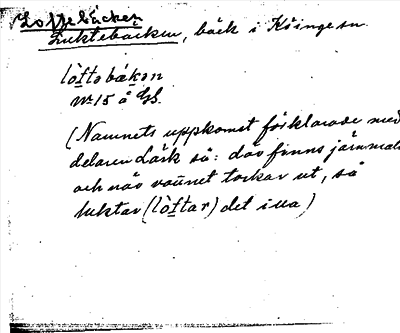 Loftebäcken
Luktebäcken, bäck i Köinge sn.
lòftobækən
Nr 15 å GS.
(Namnets uppkomst förklarade med
delaren Lärk så: där finns järnmalm
och när vattnet torkar ut, så
luktar (lòftar) det illa)